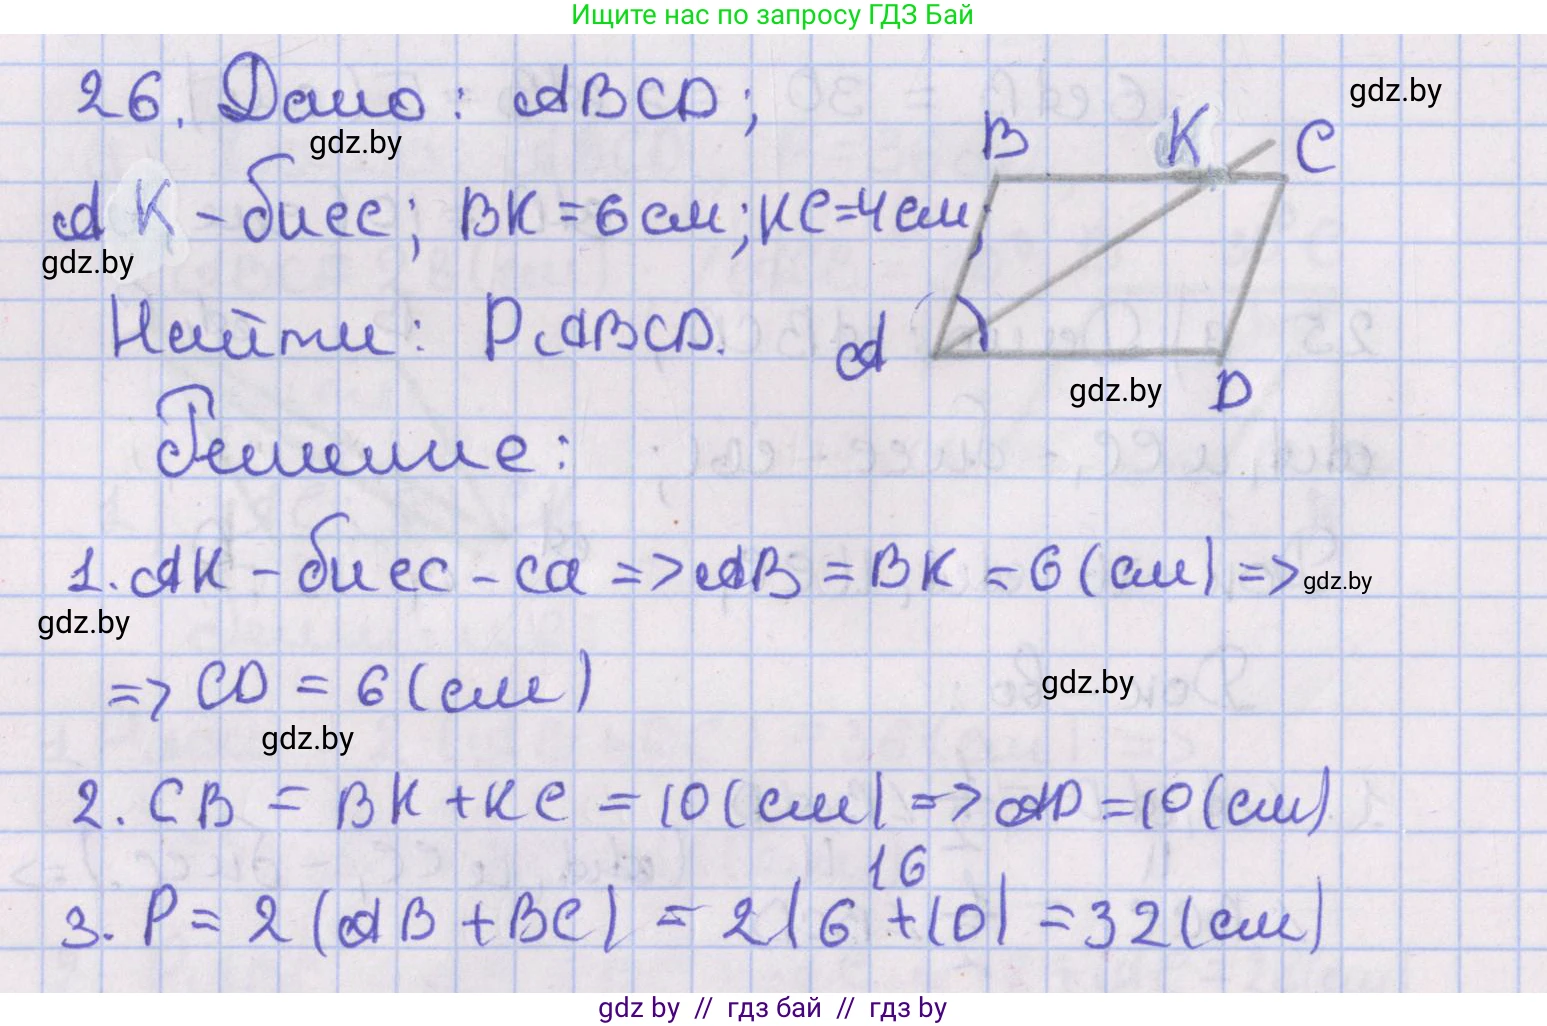 Ищите нас по запросу ГДЗ Бай
26. Дано: ABCD;
gdz.by
gdz.by
B K C
AK - бисс; BK = 6 см; KC = 4 см;
gdz.by
Найти: P ABCD.
A
gdz.by
D
Решение:
1. AK - бисс - са => AB = BK = 6 (см) =>
gdz.by
gdz.by
=> CD = 6 (см)
gdz.by
gdz.by
2. CB = BK + KC = 10 (см) => AD = 10 (см)
16
3. P = 2 (AB + BC) = 2 (6 + 10) = 32 (см)
gdz by // гдз бай // гдз by